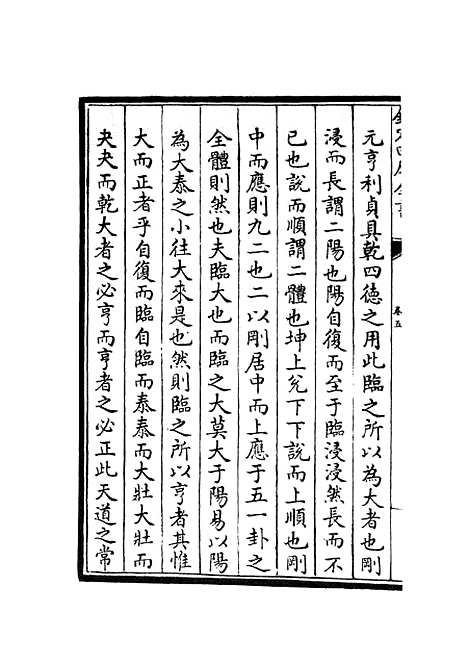 欽定四庫全書
卷五
元亨利貞具乾四德之用此臨之所以為大者也剛
浸而長謂二陽也陽自復而至于臨浸浸然長而不
已也說而順謂二體也坤上兊下下說而上順也剛
中而應則九二也二以剛居中而上應于五一卦之
全體則然也夫臨大也而臨之大莫大于陽易以陽
為大泰之小往大來是也然則臨之所以亨者其惟
大而正者乎自復而臨自臨而泰泰而大壯大壯而
夬夬而乾大者之必亨而亨者之必正此天道之常